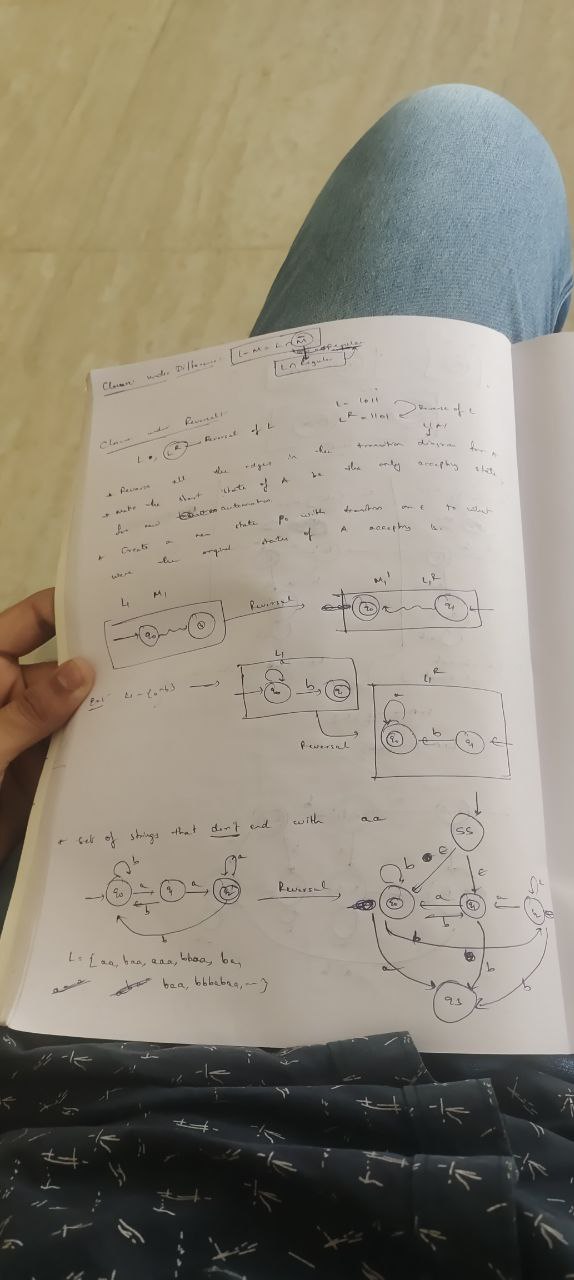 Closure under Difference: L - M = L ∩ M̄
L ∩ Regular
Closure under Reversal:
L = 1011
Lᴿ = 1101
Reverse of L
L, Lᴿ Reversal of L
* Reverse all the edges in the transition diagram for A
* Make the start state of A be the only accepting state
for new automaton.
* Create a new state p₀ with transition on ε to
were the original states of A accepting
L₁ M₁
q₀
Reversal
M₁' L₁ᴿ
q₀ q₁
Ex: L₁ = {a*b}
L₁
a
q₀ b q₁
Reversal
L₁ᴿ
a
q₀ b q₁
* set of strings that don't end with aa
b a
q₀ a q₁ a q₂
b
b
Reversal
SS
ε ε
b
q₀ a q₁ a q₂
b
b
a b b
q₃
L = {aa, baa, aaa, bbaa, ba,
baa, bbbabaa, ...}